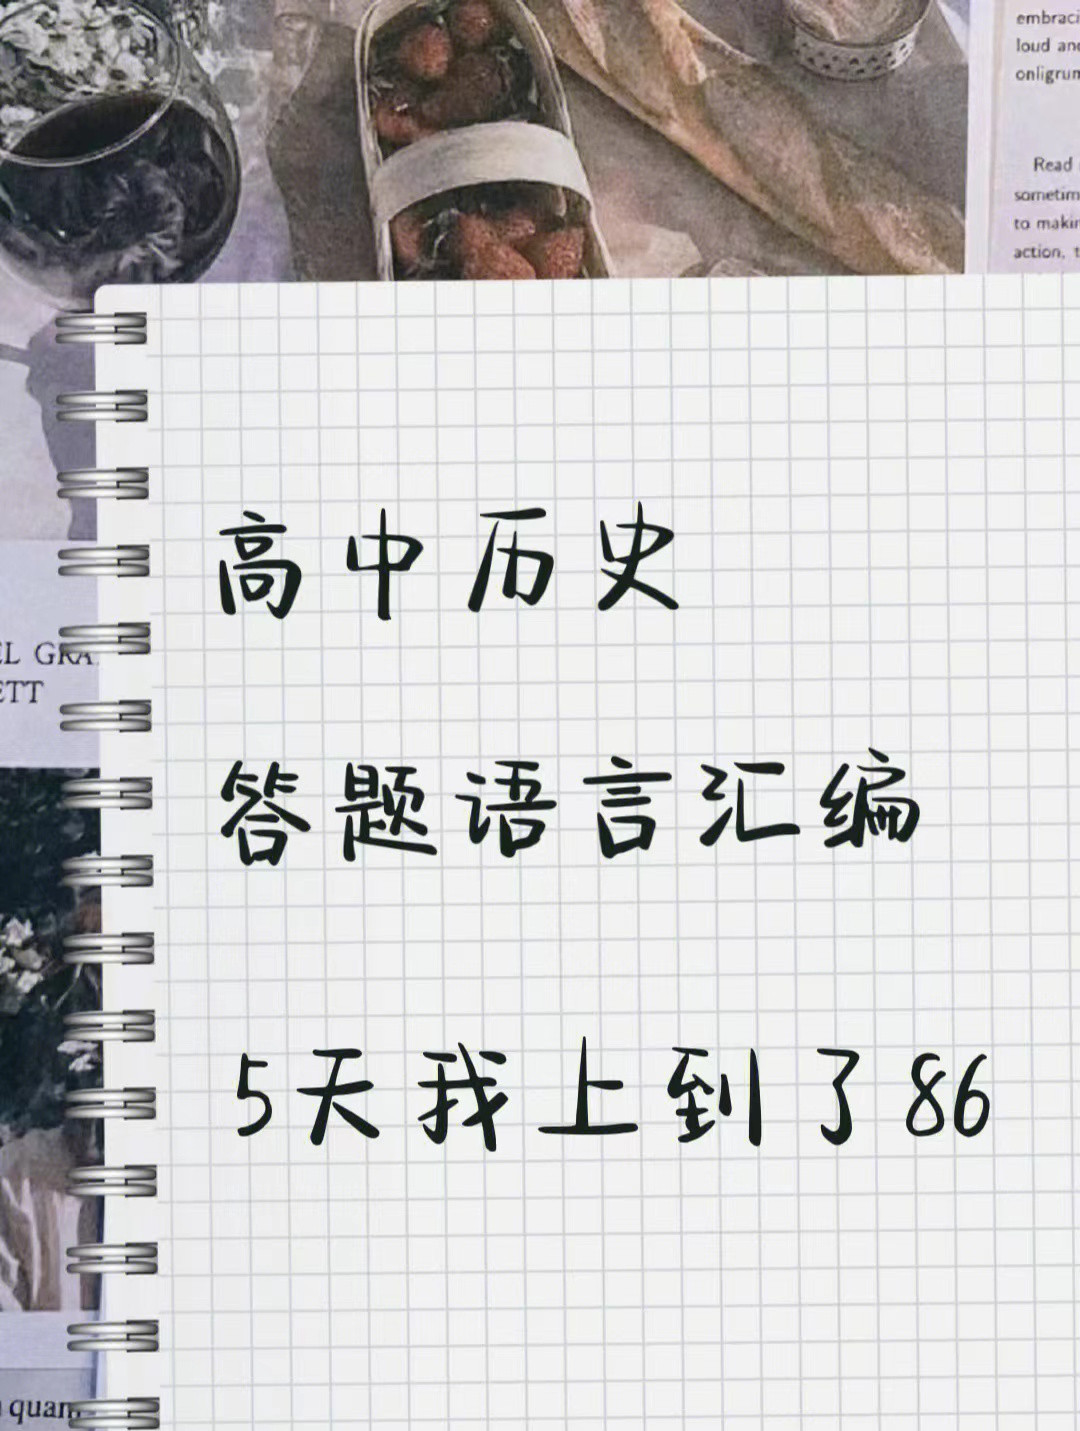 embraci
loud and
onligrum
Read
sometim
to makin
action, t
高中历史
EL GRA
ETT
答题语言汇编
5天我上到了86
quam